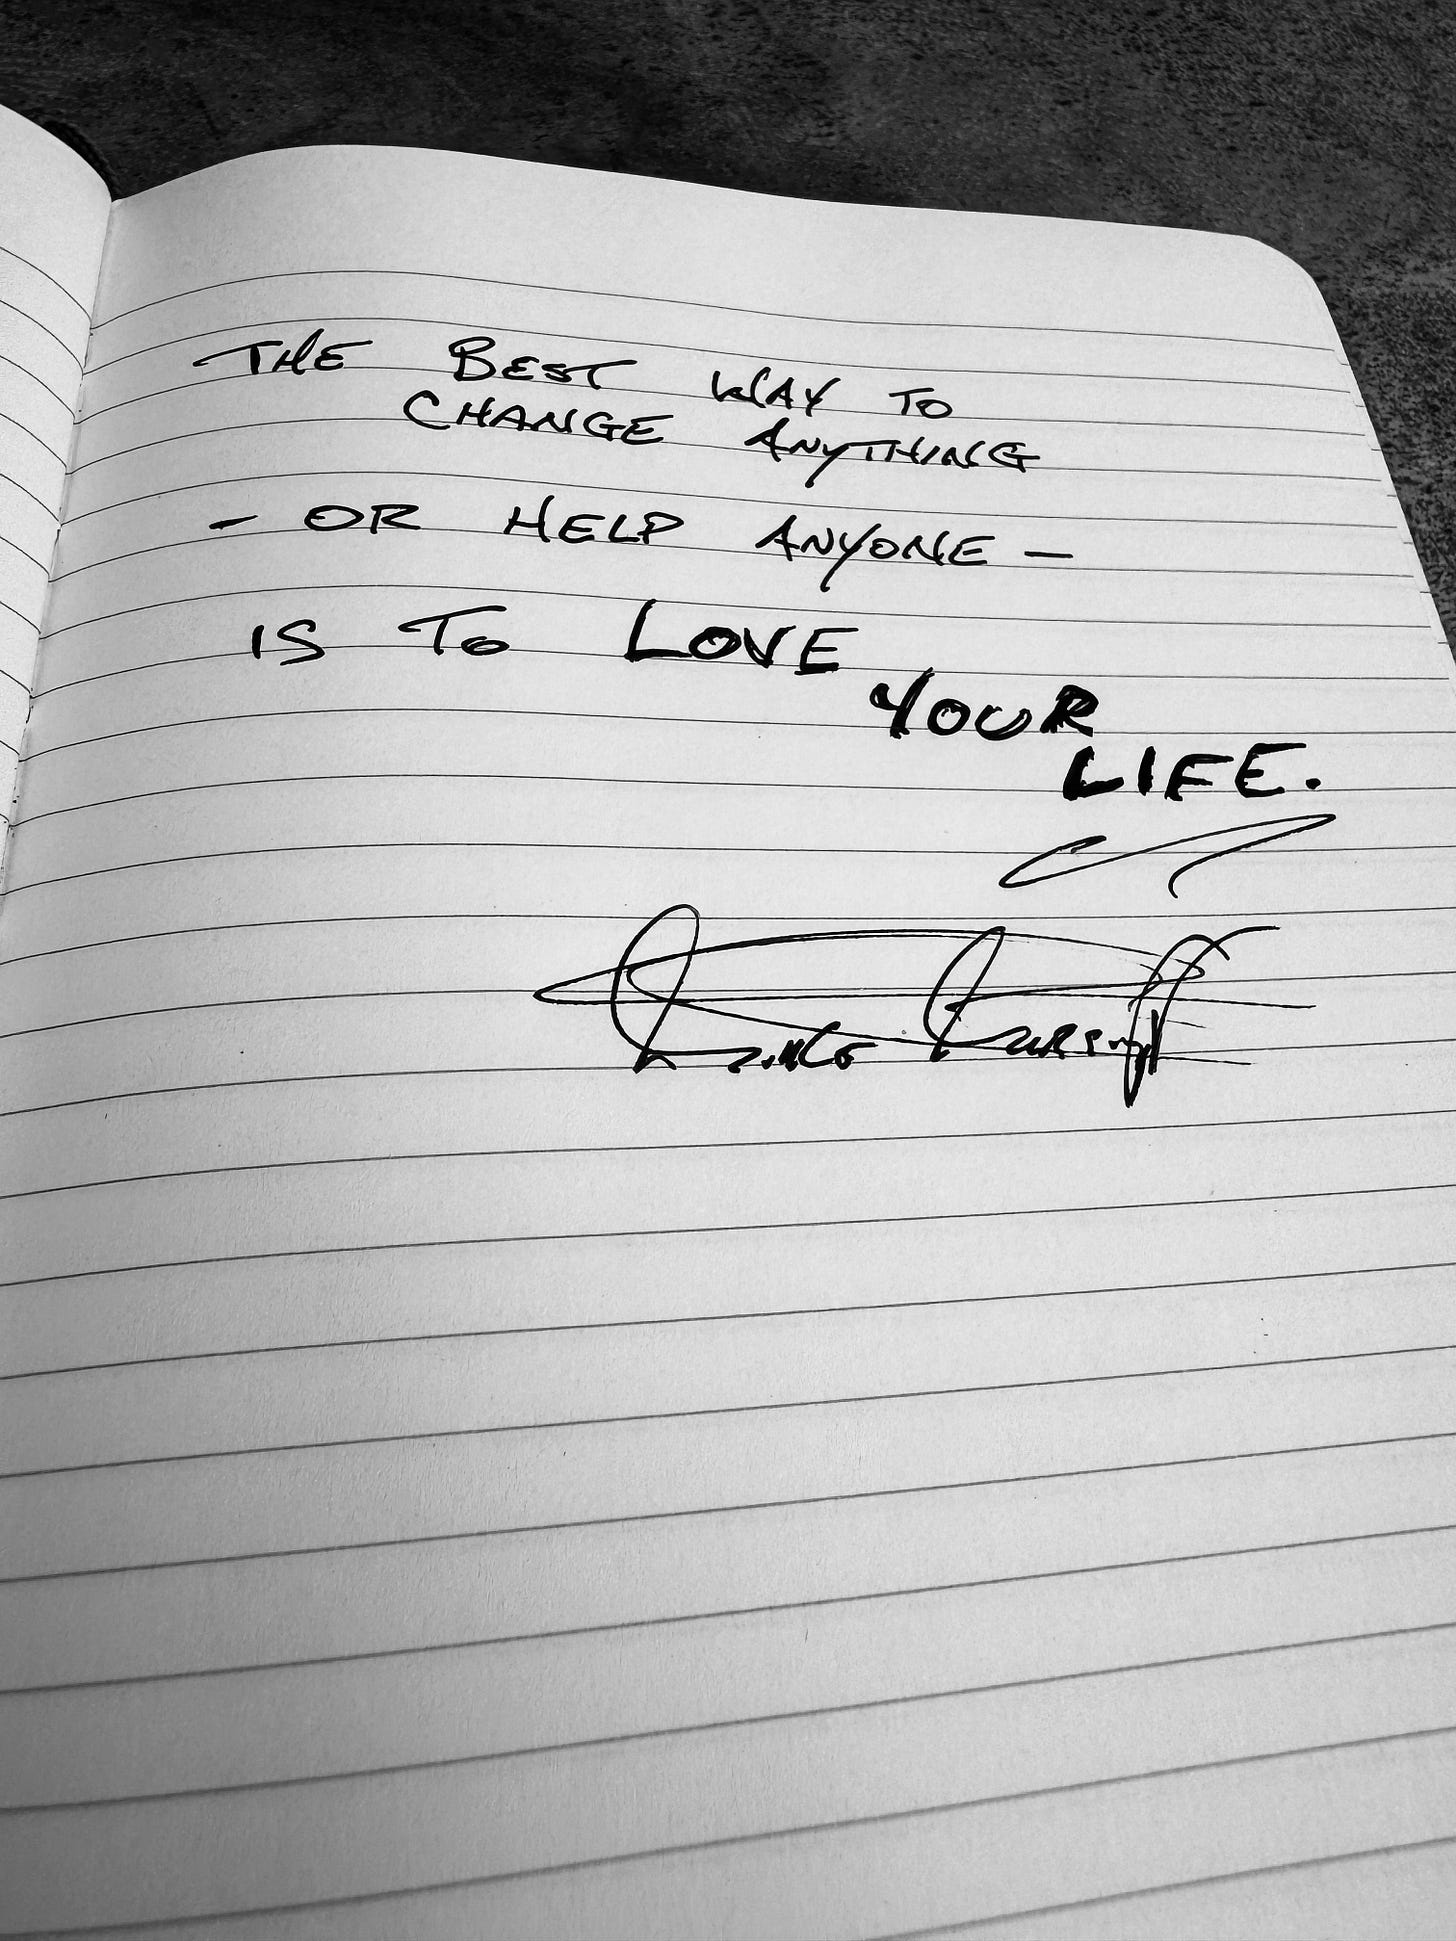 THE BEST WAY TO
CHANGE ANYTHING
- OR HELP ANYONE -
IS TO LOVE
YOUR
LIFE.